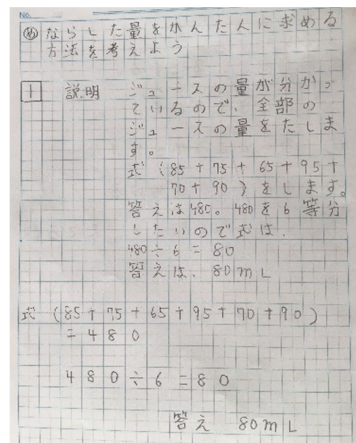 No.
め ならした量をかんたんに求める
方法を考えよう
1 説明 ジュースの量が分かっ
ているので、全部の
ジュースの量をたしま
す。
式(85+75+65+95+
70+90)をします。
答えは480。480を6等分
したいので式は、
480÷6=80
答えは、80mL
式 (85+75+65+95+70+90)
=480
480÷6=80
答え 80mL